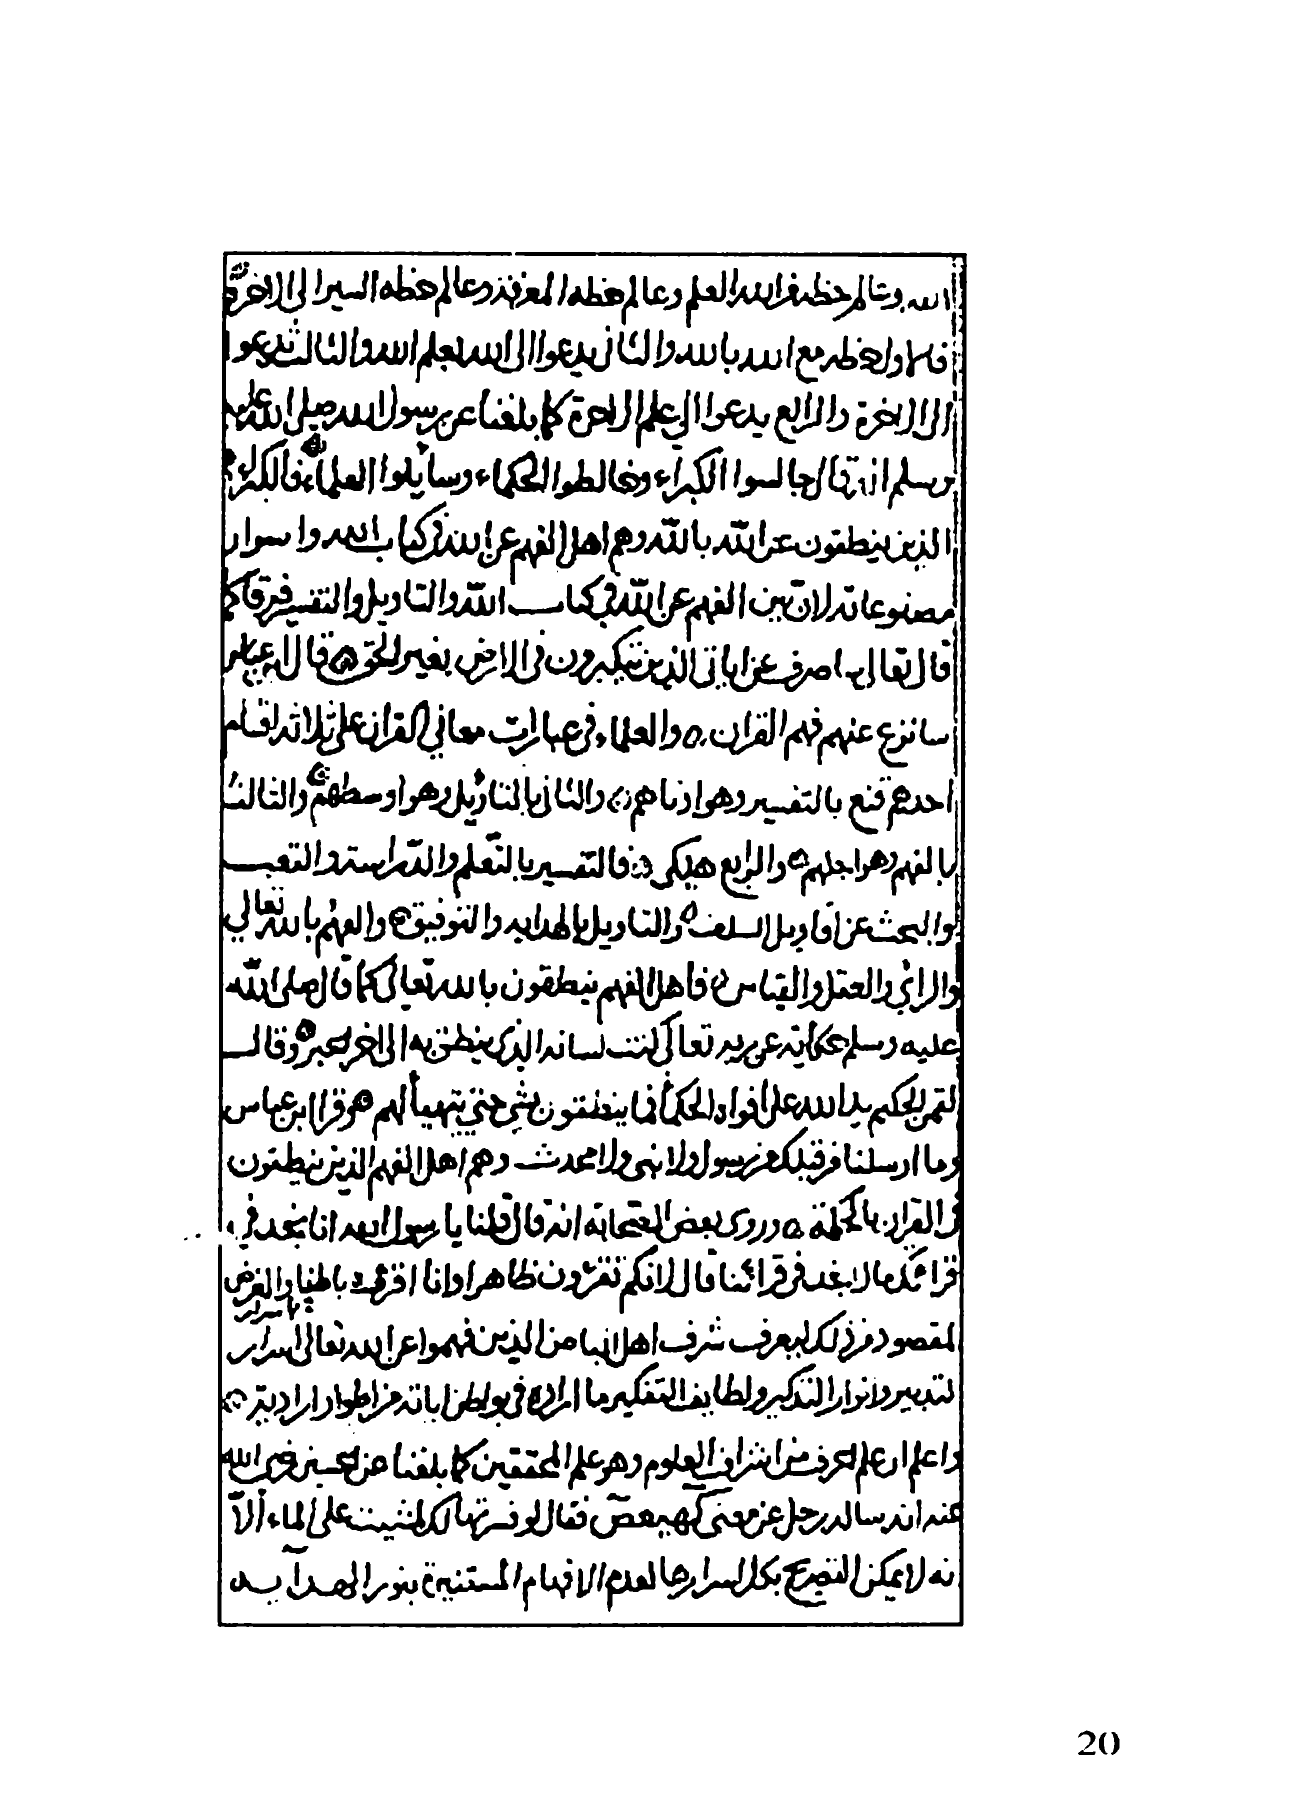 الله وعالم حظه من الله العلم وعالم حظه المعرفة وعالم حظه السير الى الاخرة
فالاول حظه مع الله بالله والثاني يدعوا الى الله بعلم الله والثالث يدعوا
الى الاخرة والرابع يدعوا الى علم الاخرة كما بلغنا عن رسول الله صلى الله عليه
وسلم انه قال جالسوا الكبراء وخالطوا الحكماء وسايلوا العلماء فالكبراء
الذين ينطقون عن الله بالله وهم اهل الفهم عن الله في كتاب الله واسرار
مصنوعاته لان بين الفهم عن الله في كتاب الله والتاويل والتفسير فرقا كما
قال تعالى ساصرف عن اياتي الذين يتكبرون في الارض بغير الحق قال ابن عباس
سانزع عنهم فهم القران والعلماء في عبارات معاني القران على ثلاثة اقسام
احدهم قنع بالتفسير وهو ادناهم والثاني بالتاويل وهو اوسطهم والثالث
بالفهم وهو اجلهم والرابع هيكي فالتفسير بالتعلم والدراسة والتعب
والبحث عن اقاويل السلف والتاويل بالهداية والتوفيق والفهم بالله تعالى
والراي والعقل والقياس فاهل الفهم ينطقون بالله تعالى كما قال صلى الله
عليه وسلم حكاية عن ربه تعالى كنت لسانه الذي ينطق به الى اخر الخبر وقال
لقمن الحكيم يد الله على افواه الحكما فما ينطقون بشي حتى يتهيا لهم وقرا ابن عباس
وما ارسلنا من قبلك من رسول ولا نبي ولا محدث وهم اهل الفهم الذين ينطقون
في القران بالحكمة وروى بعض الصحابة انه قال قلنا يا رسول الله انا نجد في
قراتك ما لا نجد في قرائتنا قال لانكم تقرؤن ظاهرا وانا اقرؤه باطنا والغرض
المقصود من ذلك ليعرف شرف اهل الباطن الذين فهموا عن الله تعالى اسرار
التدبير وانوار التذكير ولطايف التفكير ما اراده في بواطن اياته من اطوار ارادته
واعلم ان علم الحرف من اشراف العلوم وهو علم المحققين كما بلغنا عن الحسين رضى الله
عنه انه ساله رجل عن معنى كهيعص فقال لو فسرتها لك لمشيت على الماء الا
نه لا يمكن التصريح بكل اسرارها لعدم الافهام المستنيرة بنور الهداية
20